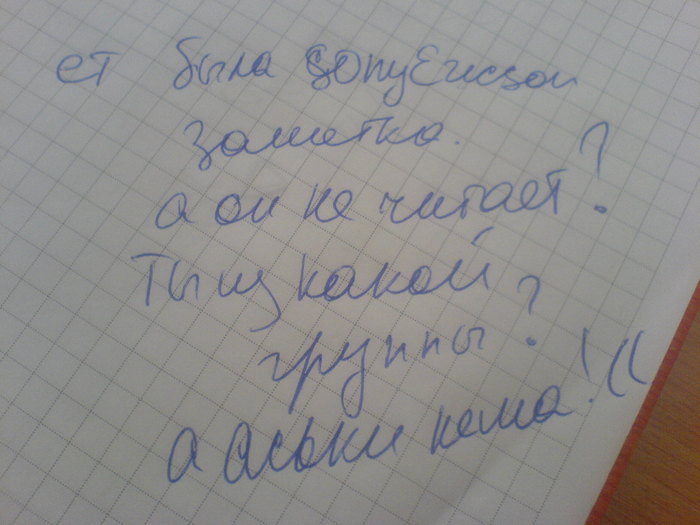 ет была SonyEricson
заметка.
а он не читает?
Ты из какой
группы?
а аськи нема!((